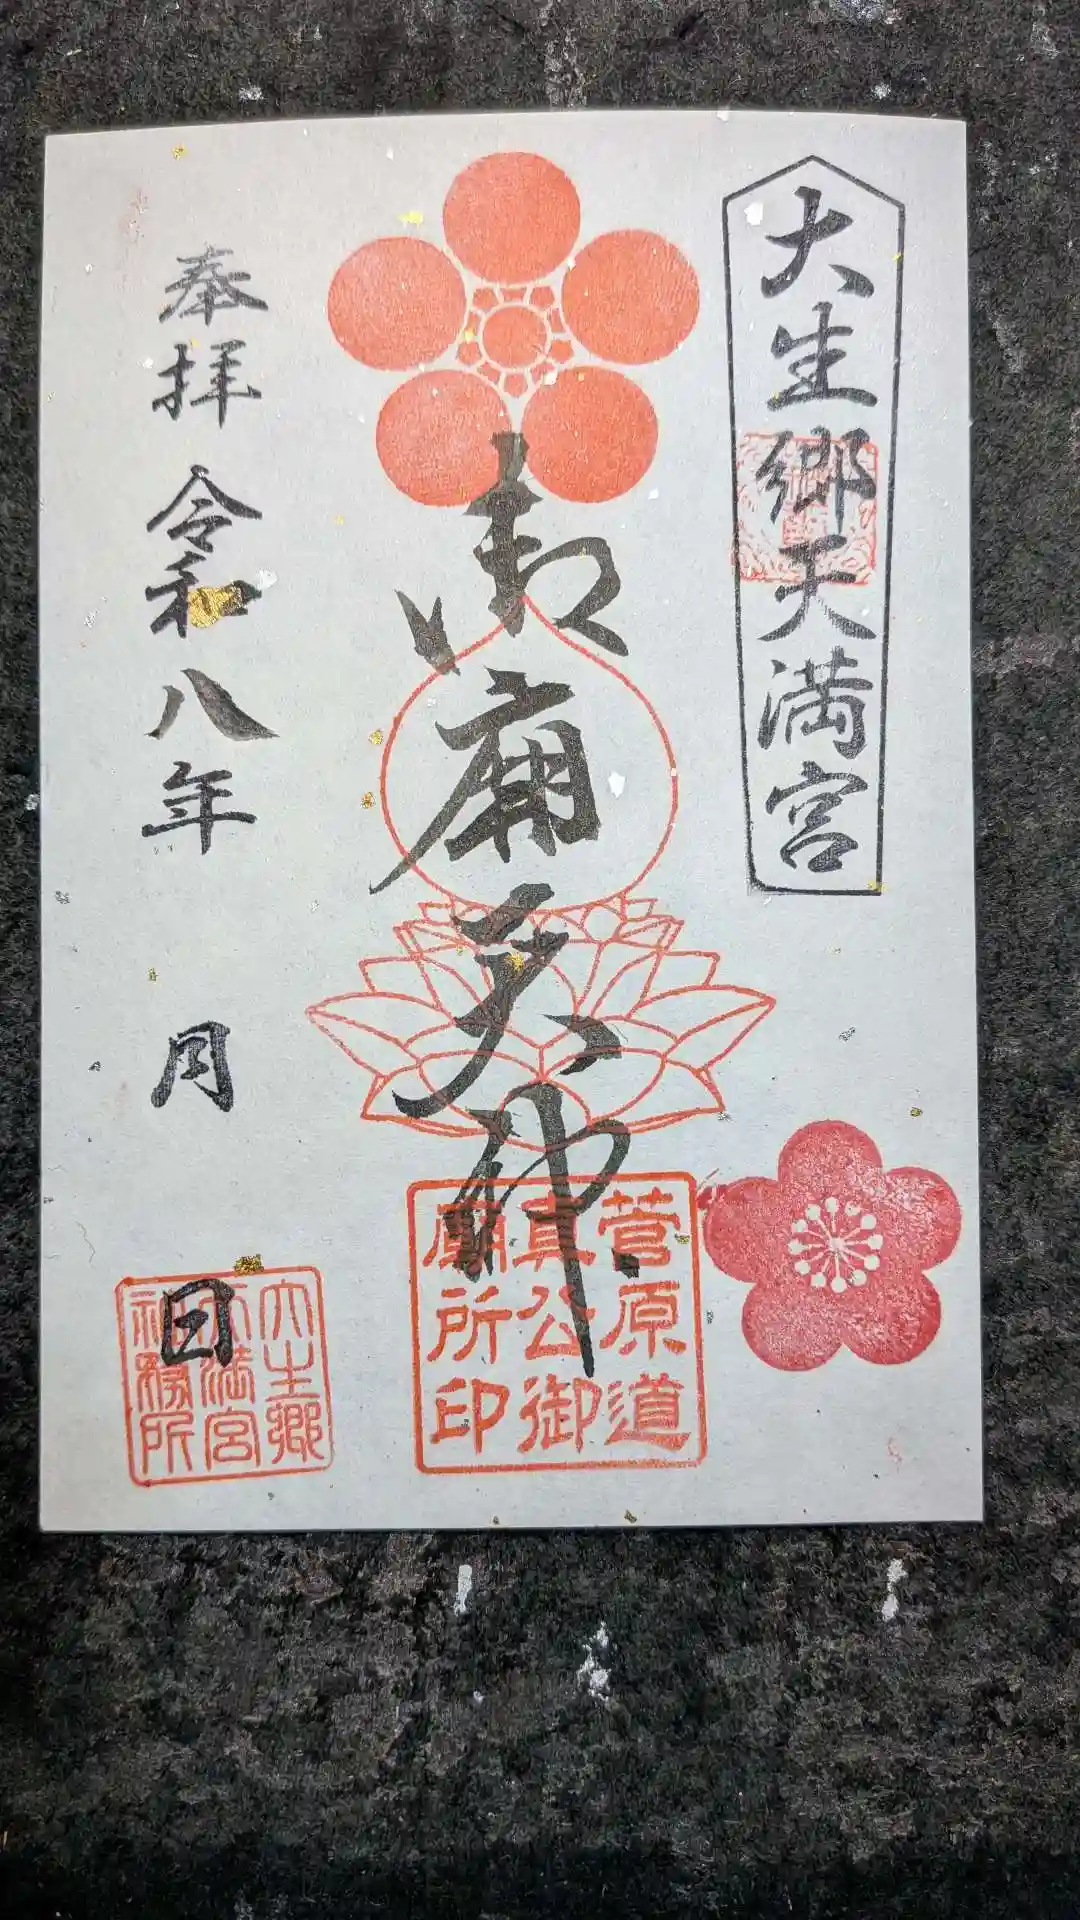 大生郷天満宮
御廟天神
菅原道
真公御
廟所印
奉拝 令和八年 月 日
大生郷
天満宮
社務所